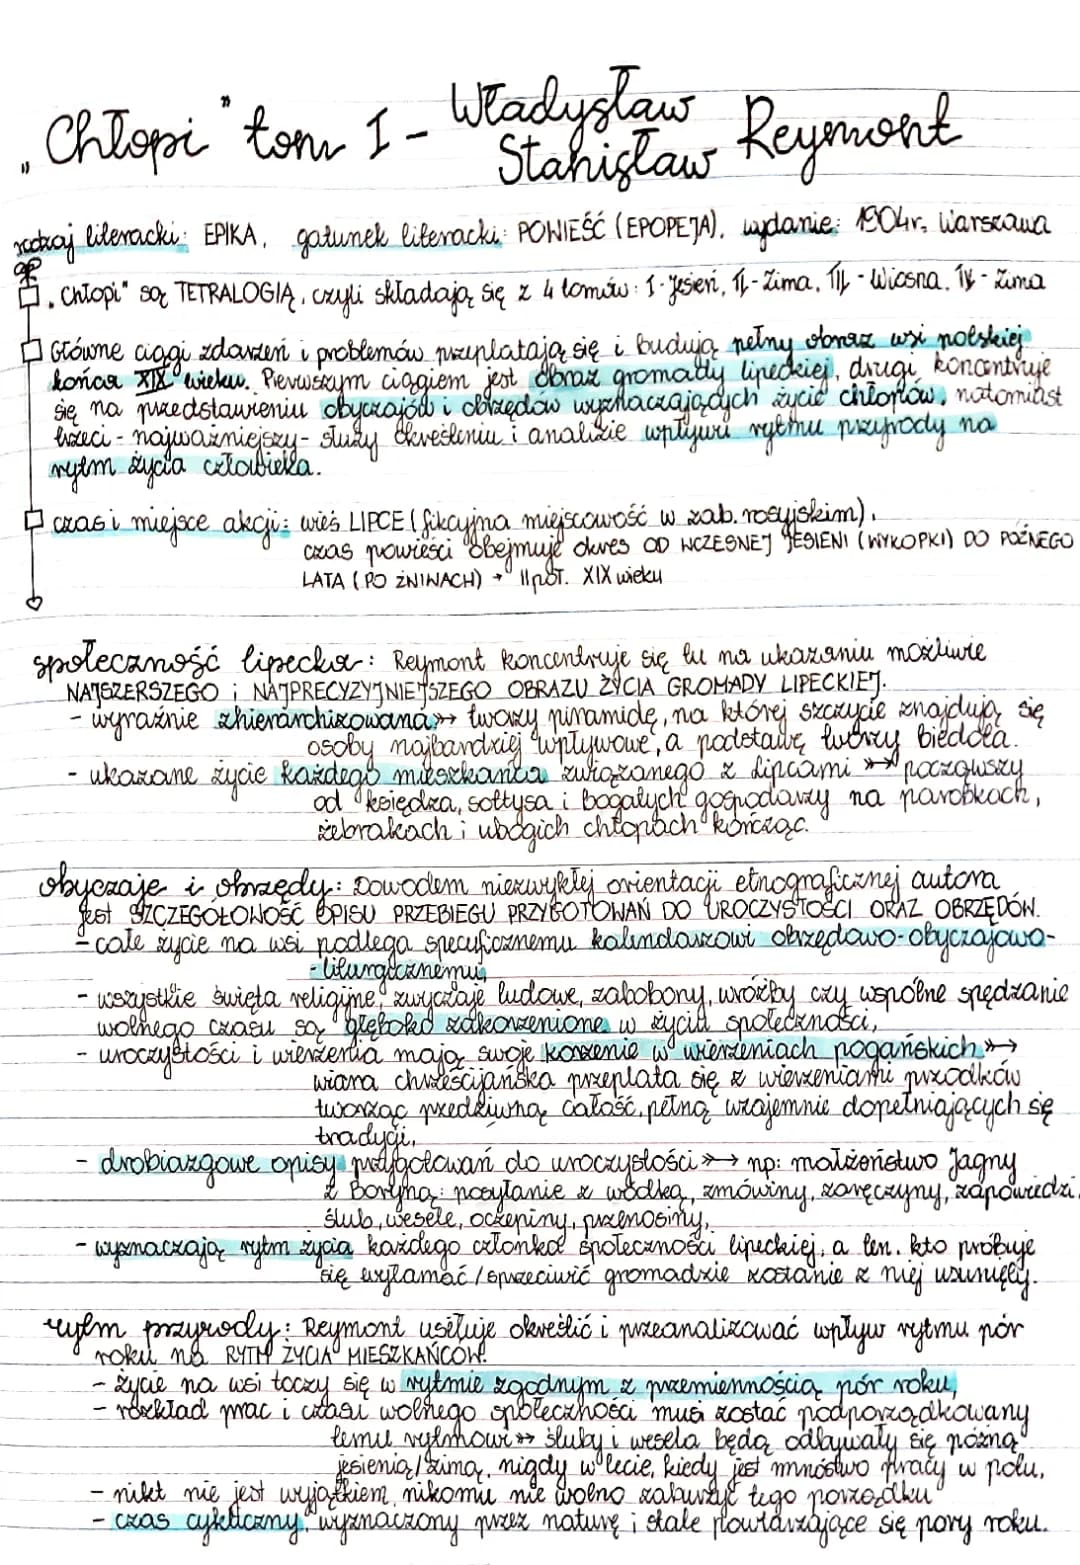 „Chłopi" tom I - Władysław Stanisław Reymont
rodzaj literacki: EPIKA, gatunek literacki: POWIEŚĆ (EPOPEJA), wydanie: 1904r, Warszawa
„Chłopi" są TETRALOGIĄ, czyli składają się z 4 tomów: I-Jesień, II-Zima, III-Wiosna, IV-Zima
Główne ciągi zdarzeń i problemów przeplatają się i budują pełny obraz wsi polskiej
końca XIX wieku. Pierwszym ciągiem jest obraz gromady lipeckiej, drugi koncentruje
się na przedstawieniu obyczajów i obrzędów wyznaczających życie chłopów, natomiast
trzeci - najważniejszy - służy określeniu i analizie wpływu rytmu przyrody na
rytm życia człowieka.
czas i miejsce akcji: wieś LIPCE (fikcyjna miejscowość w zab. rosyjskim),
czas powieści obejmuje okres OD WCZESNEJ JESIENI (WYKOPKI) DO PÓŹNEGO
LATA (PO ŻNIWACH) → II poł. XIX wieku
społeczność lipecka: Reymont koncentruje się tu na ukazaniu możliwie
NAJSZERSZEGO i NAJPRECYZYJNIEJSZEGO OBRAZU ŻYCIA GROMADY LIPECKIEJ.
- wyraźnie zhierarchizowana →→ tworzy piramidę, na której szczycie znajdują się
osoby najbardziej wpływowe, a podstawę tworzy biedota.
- ukazane życie każdego mieszkańca związanego z Lipcami →→ począwszy
od księdza, sołtysa i bogatych gospodarzy na parobkach,
żebrakach i ubogich chłopach kończąc.
obyczaje i obrzędy: Dowodem niezwykłej orientacji etnograficznej autora
jest SZCZEGÓŁOWOŚĆ OPISU PRZEBIEGU PRZYGOTOWAŃ DO UROCZYSTOŚCI ORAZ OBRZĘDÓW.
- całe życie na wsi podlega specyficznemu kalendarzowi obrzędowo-obyczajowo-
-liturgicznemu,
- wszystkie święta religijne, zwyczaje ludowe, zabobony, wróżby czy wspólne spędzanie
wolnego czasu są głęboko zakorzenione w życiu społeczności,
- uroczystości i wierzenia mają swoje korzenie w wierzeniach pogańskich →→
wiara chrześcijańska przeplata się z wierzeniami przodków
tworząc przedziwną całość, pełną wzajemnie dopełniających się
tradycji,
- drobiazgowe opisy przygotowań do uroczystości →→ np: małżeństwo Jagny
z Boryną: posyłanie z wódką, zmówiny, zaręczyny, zapowiedzi,
ślub, wesele, oczepiny, przenosiny,
- wyznaczają rytm życia każdego członka społeczności lipeckiej, a ten, kto próbuje
się wyłamać/sprzeciwić gromadzie zostanie z niej usunięty.
rytm przyrody: Reymont usiłuje określić i przeanalizować wpływ rytmu pór
roku na RYTM ŻYCIA MIESZKAŃCÓW.
- życie na wsi toczy się w rytmie zgodnym z przemiennością pór roku,
- rozkład prac i czasu wolnego społeczności musi zostać podporządkowany
temu rytmowi →→ śluby i wesela będą odbywały się późną
jesienią/zimą, nigdy w lecie, kiedy jest mnóstwo pracy w polu,
- nikt nie jest wyjątkiem, nikomu nie wolno zaburzyć tego porządku
- czas cykliczny, wyznaczony przez naturę i stale powtarzające się pory roku.